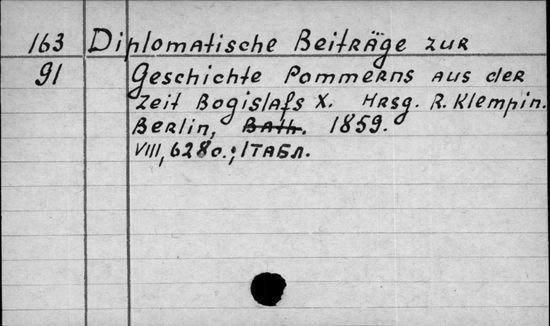 163 Diplomatische Beiträge zur
91 Geschichte Pommerns aus der
Zeit Bogislafs X. Hrsg. R. Klempin.
Berlin, Bath. 1859.
VIII, 628 с.; 1 табл.